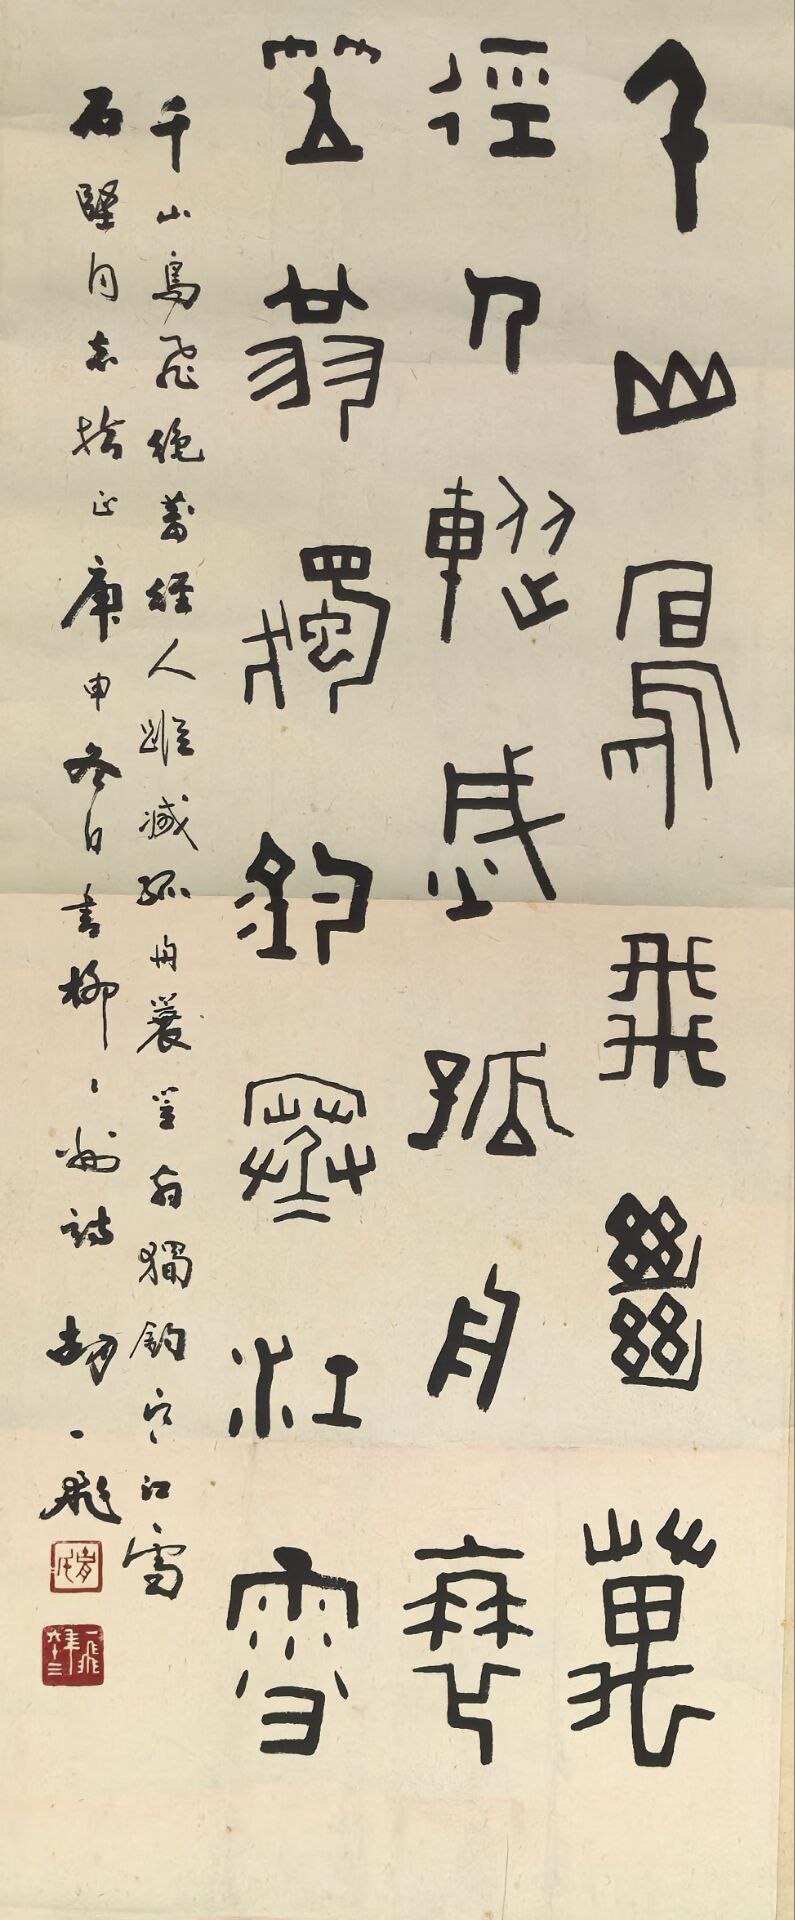 千山鳥飛絕萬
徑人蹤滅孤舟蓑
笠翁獨釣寒江雪
千山鳥飛絕萬徑人蹤滅孤舟蓑笠翁獨釣寒江雪
石堅同志指正庚申冬日書柳〻州詩 胡一飛
胡氏
一飛年六十三